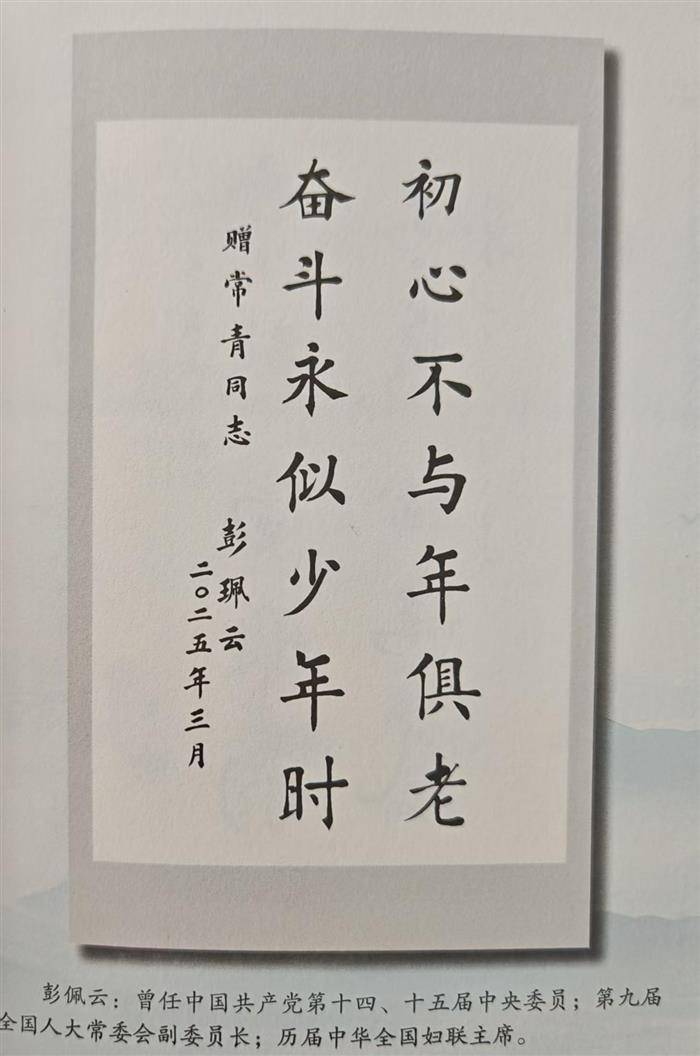 初心不与年俱老
奋斗永似少年时
赠常青同志 彭珮云
二〇二五年三月
彭佩云：曾任中国共产党第十四、十五届中央委员；第九届
全国人大常委会副委员长；历届中华全国妇联主席。